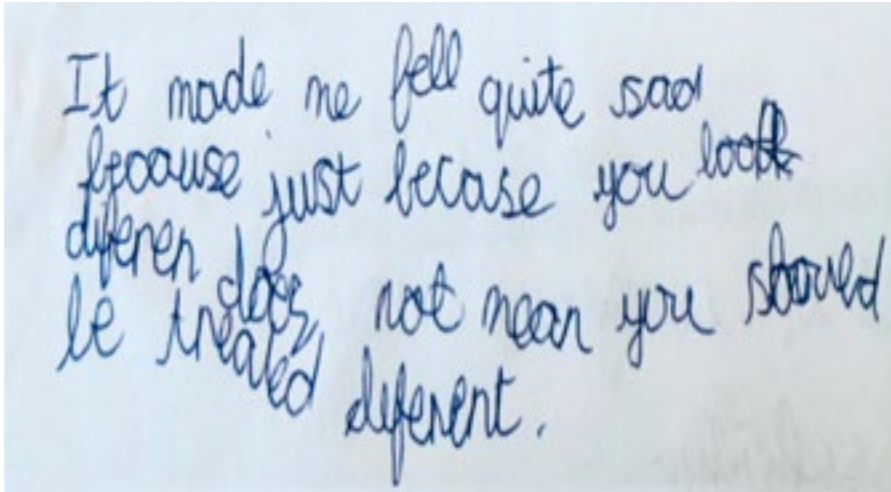 It made me fell quite sad
because just becase you look
diferen does not mean you shoued
be treated diferent.